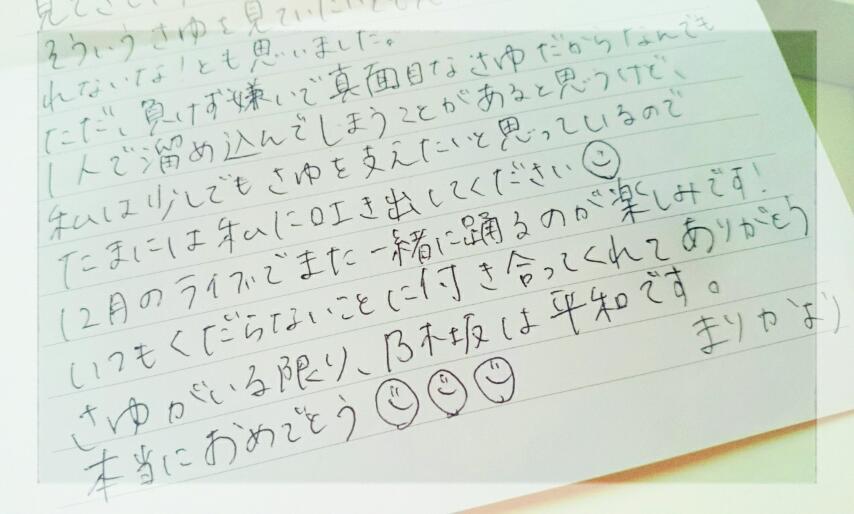 そういうさゆを見ていたいと
れないな!とも思いました。
ただ、負けず嫌いで真面目なさゆだからなんでも
1人で溜め込んでしまうことがあると思うけど、
私は少しでもさゆを支えたいと思っているので
たまには私に吐き出してください
12月のライブでまた一緒に踊るのが楽しみです!
いつもくだらないことに付き合ってくれてありがとう
さゆがいる限り、乃木坂は平和です。
本当におめでとう
まりかより